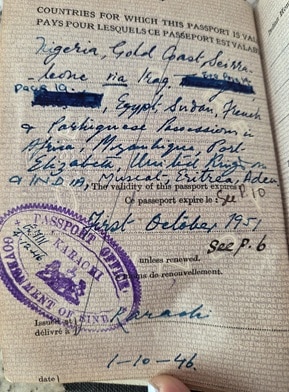 COUNTRIES FOR WHICH THIS PASSPORT IS VAL
PAYS POUR LESQUELS CE PASSEPORT EST VALAB
Nigeria, Gold Coast Sierra
-Leone via Iraq
page 19
, Egypt Sudan, French
& Portuguese Possessions in
Africa, Mozambique, Port
Elizabeth United Kingdom
& INDIA, Muscat, Eritrea, Aden
The validity of this passport expires P. 10
Ce passeport expire le: See
First October, 1951
See P. 6
unless renewed.
de renouvellement.
PASSPORT OFFICE
KARACHI
GOVERNMENT OF SIND
Issued at
délivré à
Karachi
date
1-10-46.